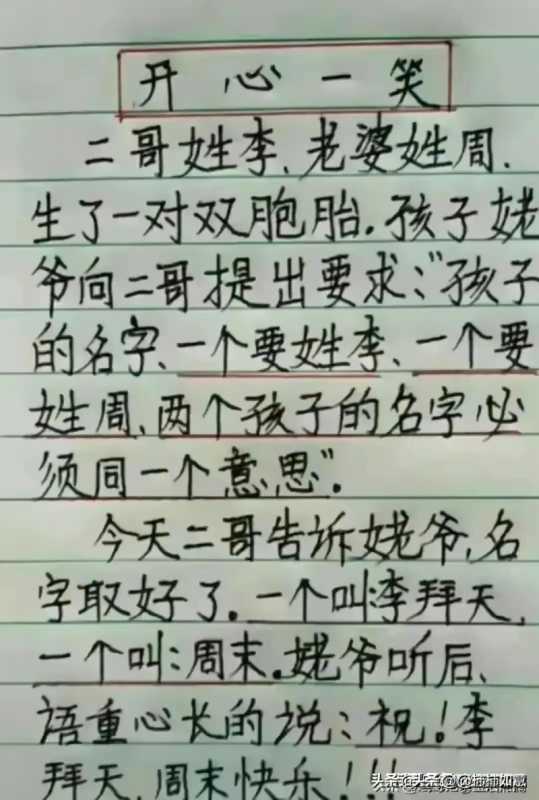 开心一笑
二哥姓李、老婆姓周、
生了一对双胞胎。孩子姥
爷向二哥提出要求:“孩子
的名字、一个要姓李、一个要
姓周、两个孩子的名字必
须同一个意思”。
今天二哥告诉姥爷,名
字取好了。一个叫:李拜天,
一个叫:周末。姥爷听后、
语重心长的说:祝!李
拜天,周末快乐!!!
头条